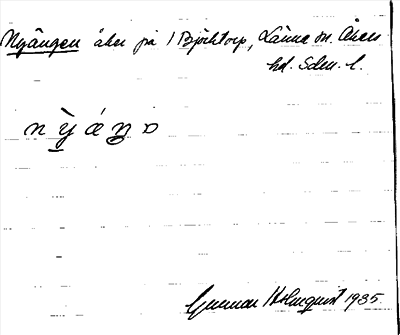 Nyängen åker på 1 Björktorp, Länna sn. Åkers
hd. Sdm. l.
Gunnar Holmquist 1935.